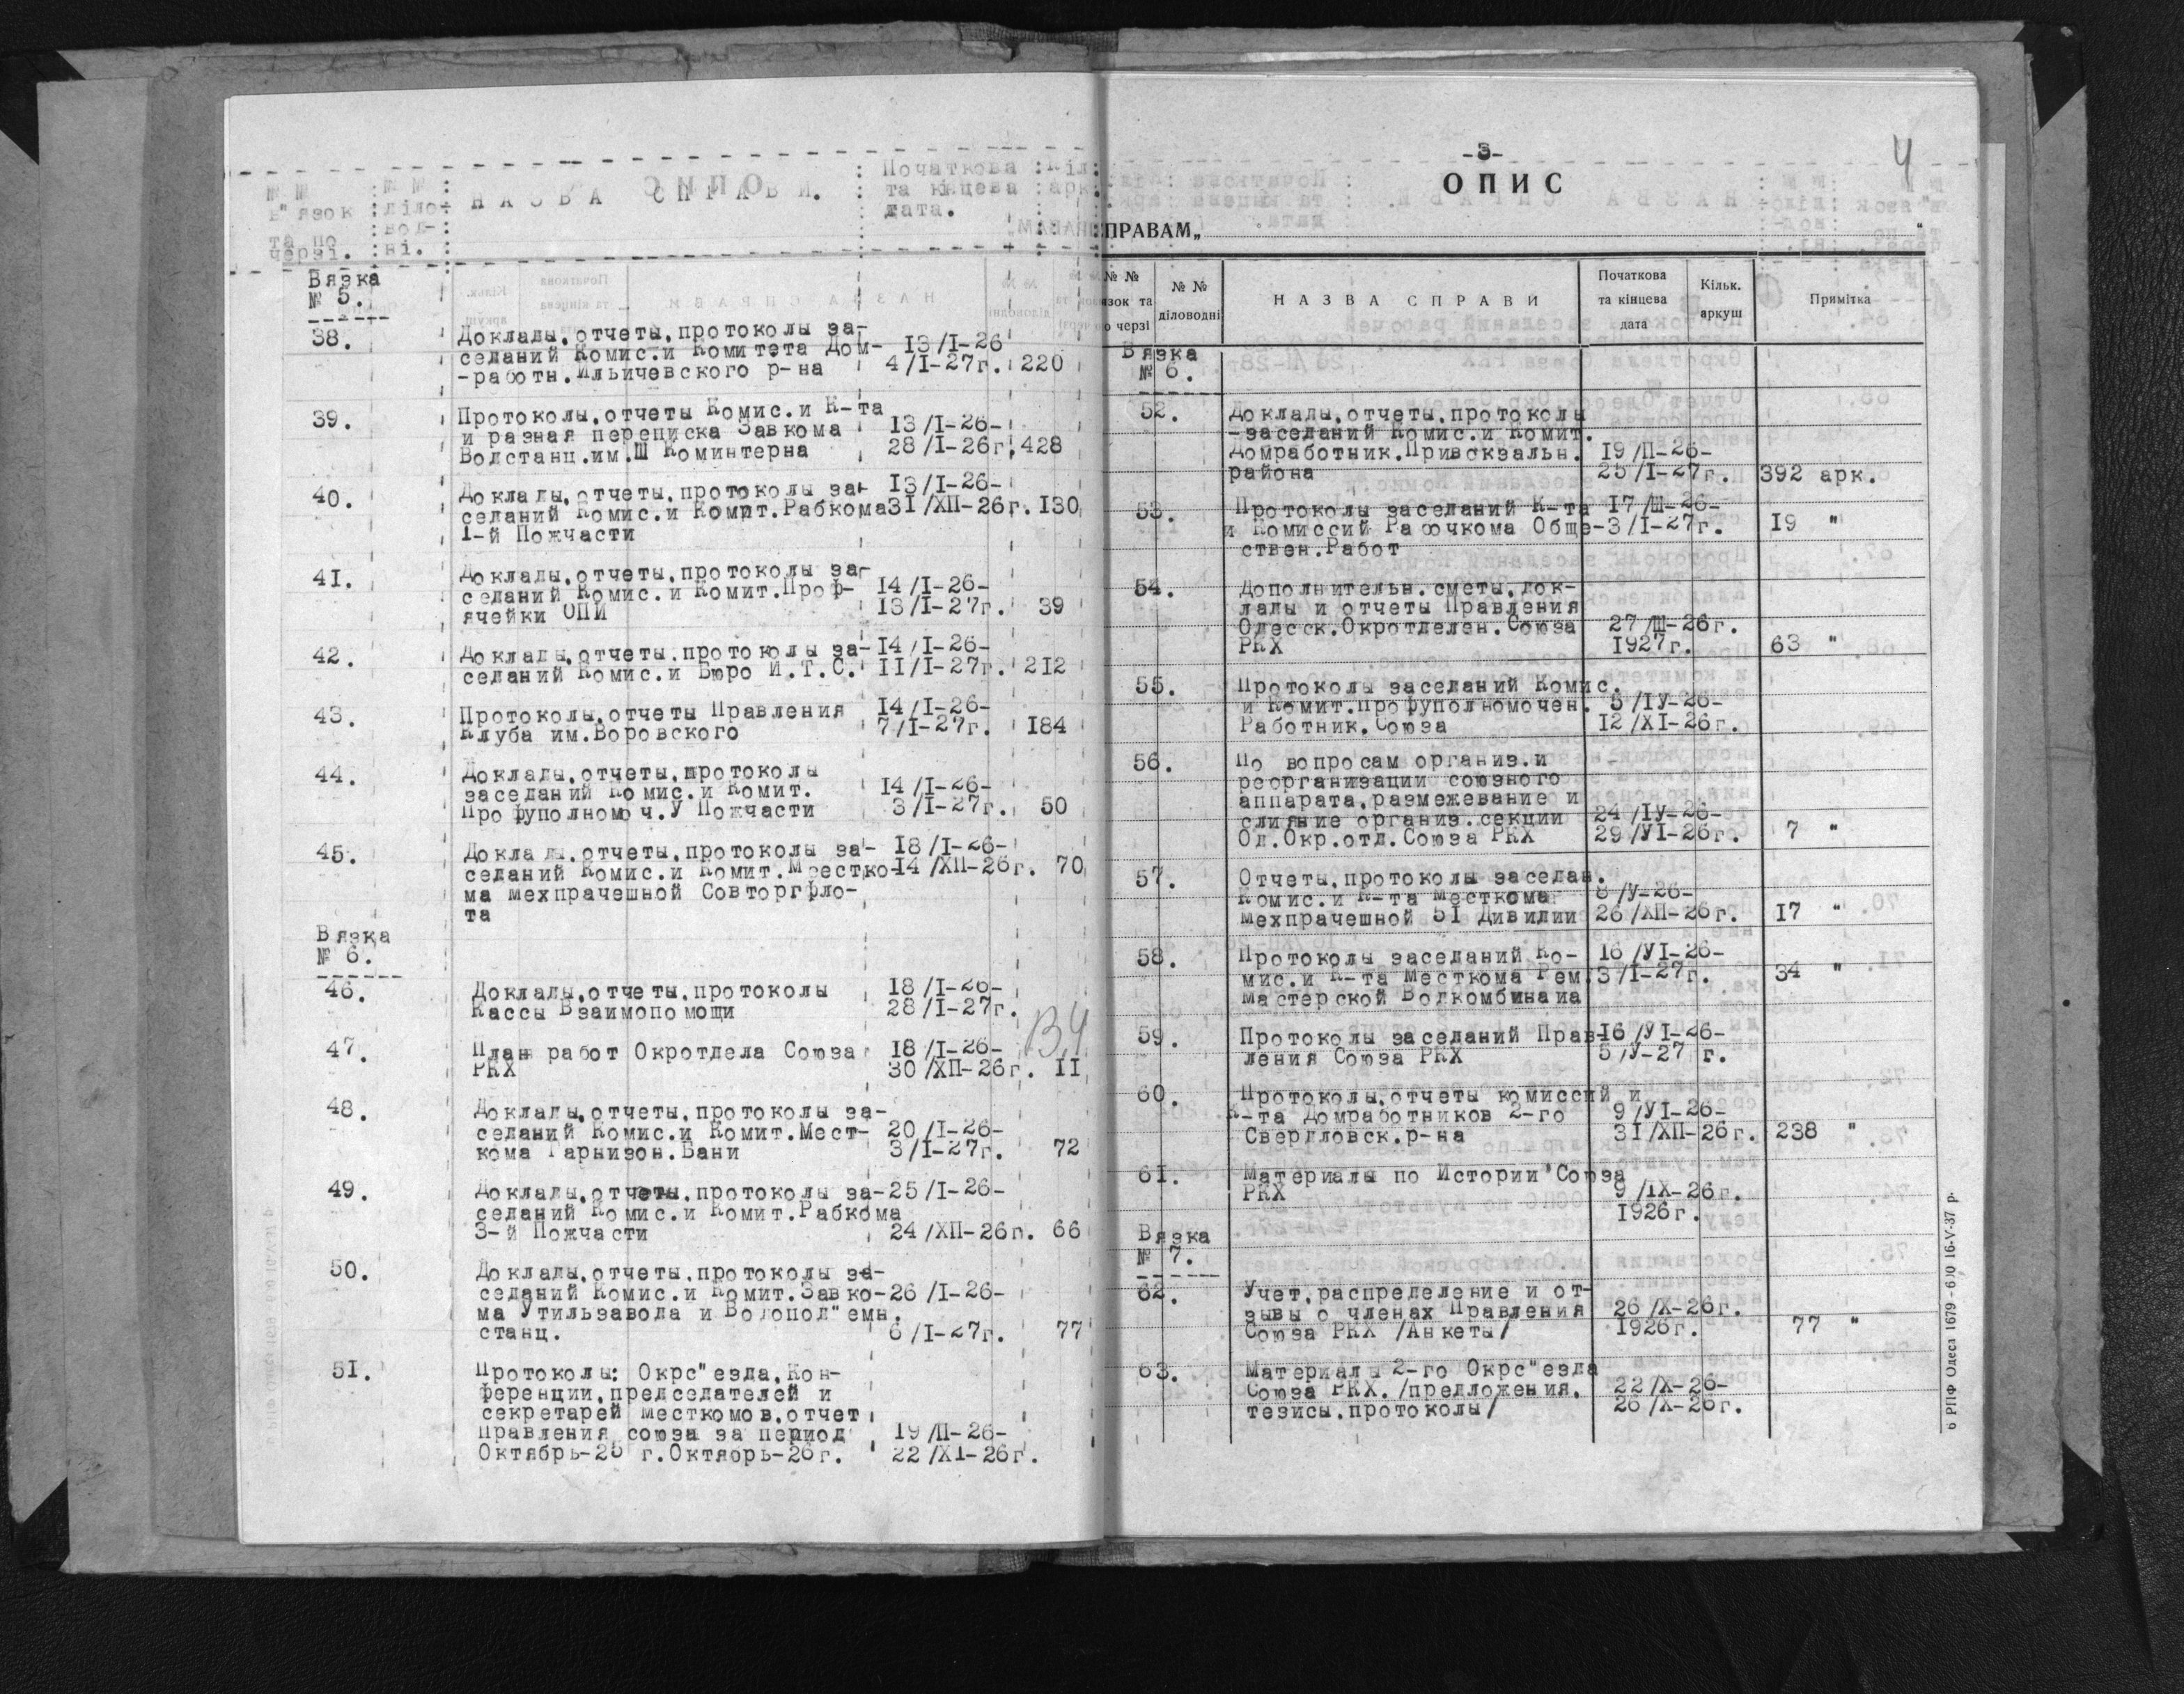 № № в"язок та по черзі. : № № діло-вод-ні. : НАЗВА СПРАВИ. : Початкова та кінцева дата. : Кіл. арк.
Вязка
№ 5.
38. Доклады,отчеты,протоколы за-
седаний Комис.и Комитета Дом- 13/I-26
-работн.Ильичевского р-на 4/I-27г. 220
39. Протоколы,отчеты Комис.и К-та
и разная переписка Завкома 13/I-26-
Водстанц.им.Ш Коминтерна 28/I-26г. 428
40. Доклады,отчеты,протоколы за- 13/I-26-
седаний Комис.и Комит.Рабкома 31/ХП-26г. 130
1-й Пожчасти
41. Доклады,отчеты,протоколы за-
седаний Комис.и Комит.Проф- 14/I-26-
ячейки ОПИ 13/I-27г. 39
42. Доклады,отчеты,протоколы за- 14/I-26-
седаний Комис.и Бюро И.Т.С. 11/I-27г. 212
43. Протоколы,отчеты Правления 14/I-26-
Клуба им.Воровского 7/I-27г. 184
44. Доклады,отчеты,протоколы
заседаний Комис.и Комит. 14/I-26-
Профуполномоч.У Пожчасти 3/I-27г. 50
45. Доклады,отчеты,протоколы за- 18/I-26-
седаний Комис.и Комит.Местко- 14/ХП-26г. 70
ма мехпрачешной Совторгфло-
та
Вязка
№ 6.
46. Доклады,отчеты,протоколы 18/I-26-
Кассы Взаимопомощи 28/I-27г.
47. План работ Окротдела Союза 18/I-26-
РКХ 30/ХП-26г. II
48. Доклады,отчеты,протоколы за-
седаний Комис.и Комит.Мест- 20/I-26-
кома Гарнизон.Бани 3/I-27г. 72
49. Доклады,отчеты,протоколы за- 25/I-26-
седаний Комис.и Комит.Рабкома
3-й Пожчасти 24/ХП-26г. 66
50. Доклады,отчеты,протоколы за-
седаний Комис.и Комит.Завко- 26/I-26-
ма Утильзавода и Водопод"емн.
станц. 6/I-27г. 77
51. Протоколы: Окрс"езда,Кон-
ференции,председателей и
секретарей месткомов,отчет
Правления союза за период 19/П-26-
Октябрь-25 г.Октябрь-26г. 22/XI-26г.
-3-
4
ОПИС
ПРАВАМ„ "
№ № язок та о черзі № № діловодні НАЗВА СПРАВИ Початкова та кінцева дата Кільк. аркуш Примітка
Вязка
№ 6.
52. Доклады,отчеты,протоколы
-заседаний Комис.и Комит.
Домработник.Привокзальн. 19/П-26-
района 25/I-27г. 392 арк.
53. Протоколы заседаний К-та 17/Ш-26-
и Комиссий Рабочкома Обще- 3/I-27г. 19 "
ствен.Работ
54. Дополнительн.сметы,док-
лады и отчеты Правления
Одесск.Окротделен.Союза 27/Ш-26г.
РКХ 1927г. 63 "
55. Протоколы заседаний Комис.
и Комит.профуполномочен. 5/IУ-26-
Работник.Союза 12/XI-26г.
56. По вопросам организ.и
реорганизации союзного
аппарата,размежевание и
слияние организ.секции 24/IУ-26-
Од.Окр.отд.Союза РКХ 29/УI-26г. 7 "
57. Отчеты,протоколы заседан.
Комис.и К-та месткома 8/У-26-
мехпрачешной 51 Дивизии 26/ХП-26г. 17 "
58. Протоколы заседаний Ко- 16/УI-26-
мис.и К-та месткома Рем. 3/I-27г. 34 "
мастерской Водкомбината
59. Протоколы заседаний Прав- 16/УI-26-
ления Союза РКХ 5/У-27 г.
60. Протоколы,отчеты комиссий и
К-та Домработников 2-го 9/УI-26-
Свердловск.р-на 31/ХП-26г. 238 "
61. Материалы по Истории Союза
РКХ 9/IХ-26г.
1926г.
Вязка
№ 7.
62. Учет,распределение и от-
зывы о членах Правления 26/Х-26г.
Союза РКХ /Анкеты/ 1926г. 77 "
63. Материалы 2-го Окрс"езда
Союза РКХ./предложения, 22/Х-26-
тезисы,протоколы/ 26/Х-26г.
6 РПФ Одеса 1679-600 16-V-37 р.